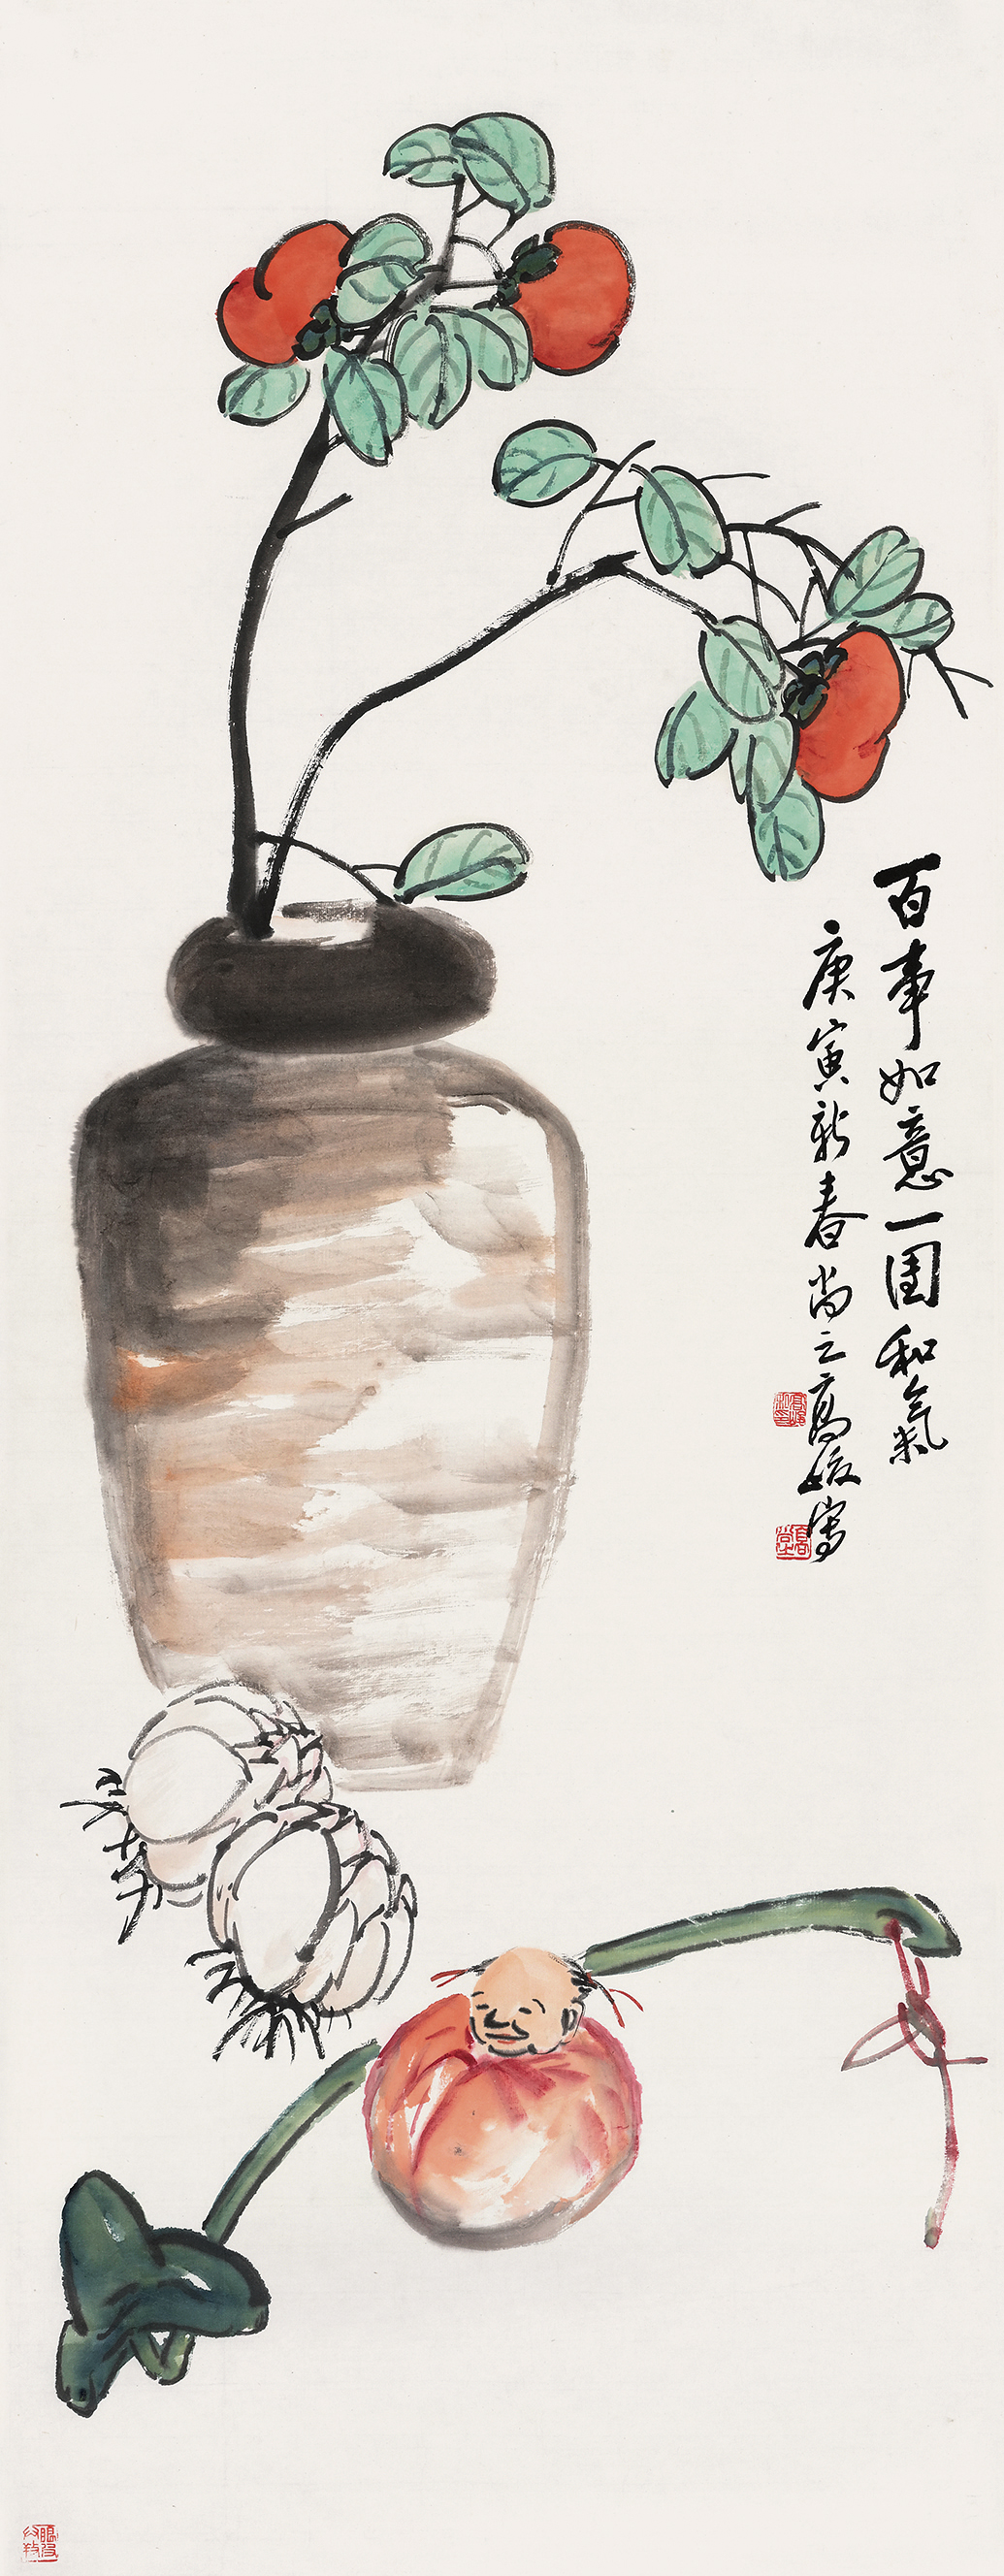 百事如意一團和氣
庚寅新春尚之高俊寫